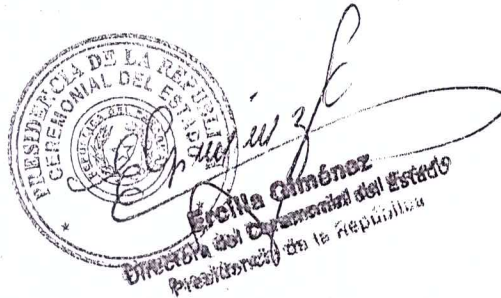 PRESIDENCIA DE LA REPUBLICA
CEREMONIAL DEL ESTADO
Ercilia Giménez
Directora del Ceremonial del Estado
Presidencia de la República